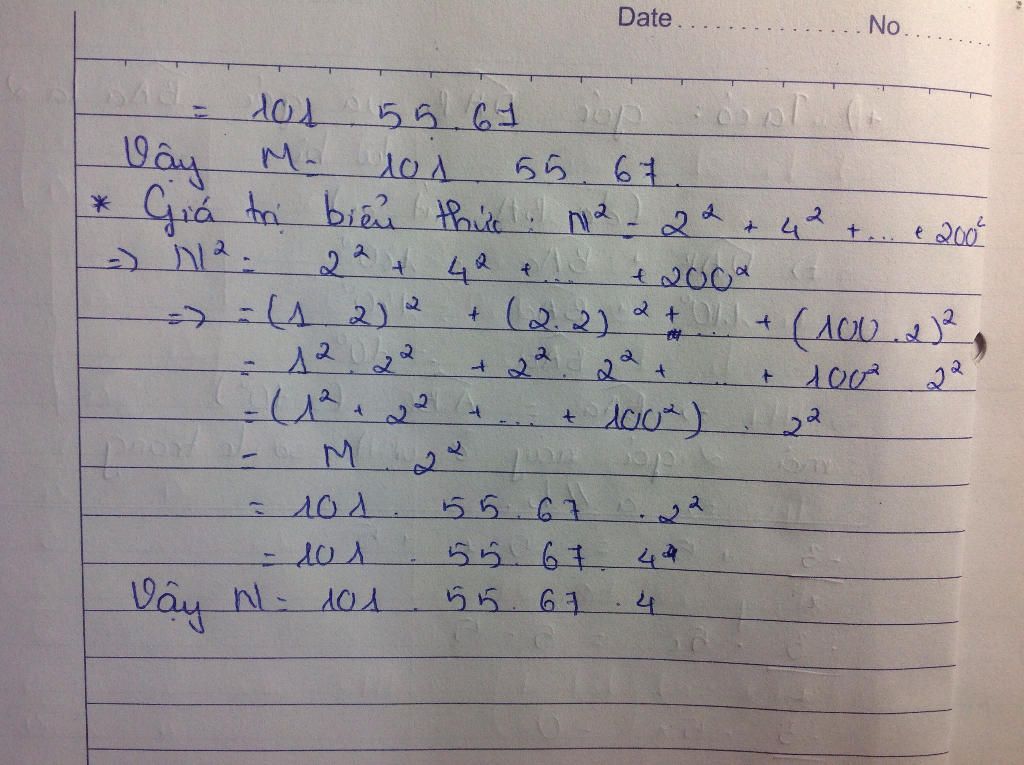 Date .................... No .........
= 101 . 55 . 67
Vậy M = 101 . 55 . 67.
* Giá trị biểu thức : N² = 2² + 4² + ... + 200²
=> N² = 2² + 4² + ... + 200²
=> = (1 2)² + (2.2)² + ... + (100 . 2)²
= 1² . 2² + 2² . 2² + ... + 100² 2²
= (1² + 2² + ... + 100²) . 2²
= M . 2²
= 101 . 55 . 67 . 2²
= 101 . 55 . 67 . 4
Vậy N = 101 . 55 . 67 . 4